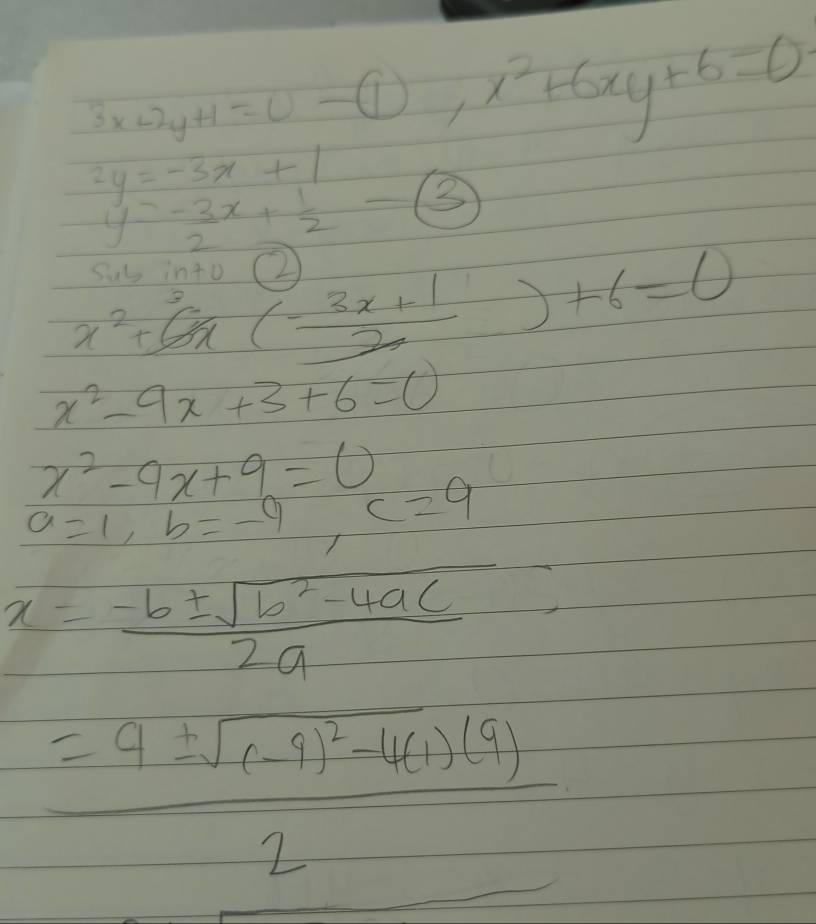 3x+2y+1=0 —①, x²+6xy+6=0
2y=-3x+1
y=-3/2x+1/2 —③
Sub into ②
x²+6x(-3x+1/2)+6=0
3
x²-9x+3+6=0
x²-9x+9=0
a=1, b=-9, c=9
x=-b±√b²-4ac/2a
=9±√(-9)²-4(1)(9)/2